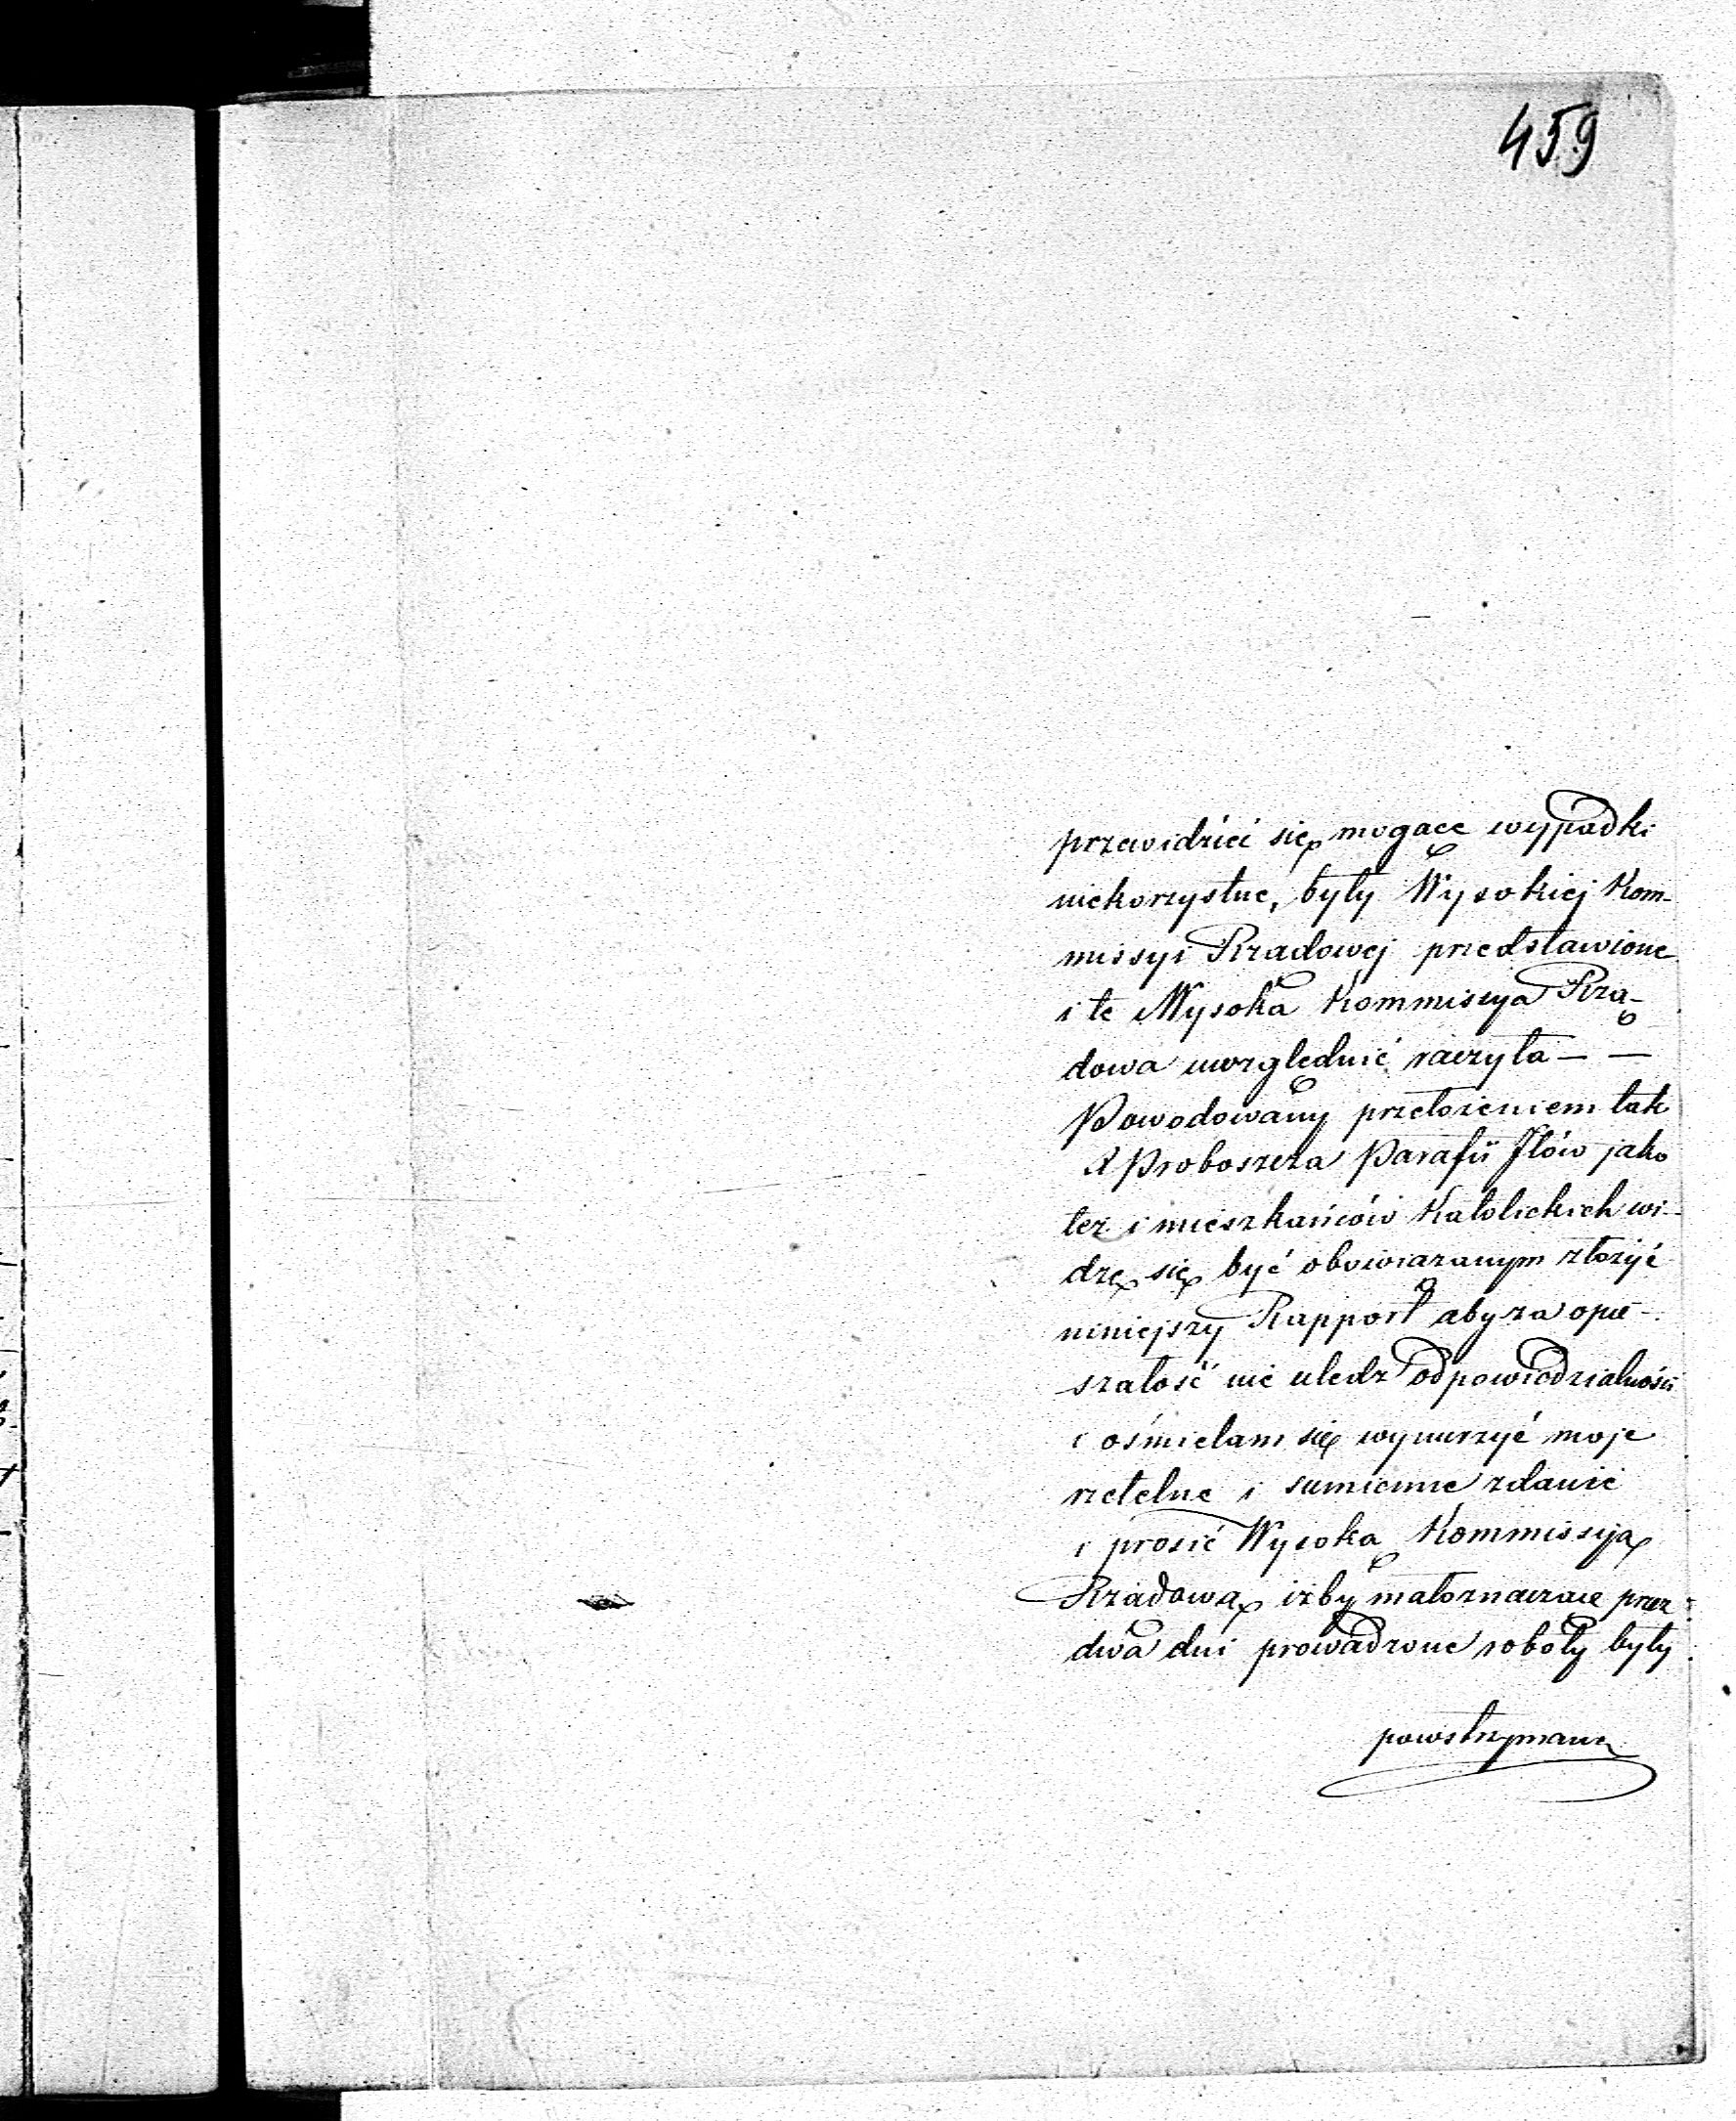 459
przewidzieć się mogące wypadki
niekorzystne, były Wysokiej Kom-
missyi Rządowej przedstawione
i te Wysoka Kommissya Rzą-
dowa uwzględnić raczyła — —
Powodowany przełożeniem tak
X Proboszcza Parafii Iłów jako
też i mieszkańców Katolickich wi-
dzę się być obowiązanym złożyć
niniejszy Rapport aby za opie-
szałość nie uledz odpowiedzialności
i ośmielam się wynurzyć moje
rzetelne i sumienne zdanie
i prosić Wysoką Kommissiją
Rządową iżby małoznaczące przez
dwa dni prowadzone roboty były
powstrzymane